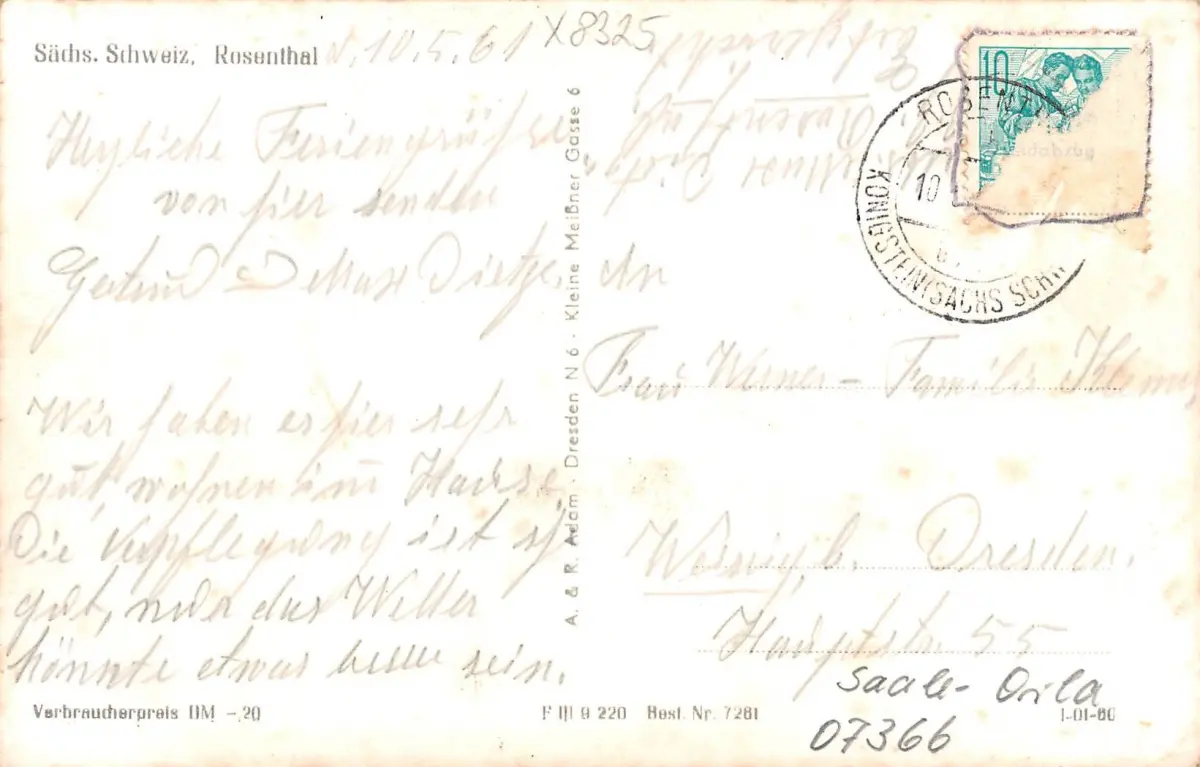 Sächs. Schweiz, Rosenthal
5.61
X8325
Herzliche Feriengrüße
von hier senden
Gertrud u Max Dietze.
Wir haben es hier sehr
gut, wohnen im Hause
Die Verpflegung ist
gut, nur das Wetter
könnte etwas besser sein.
Verbraucherpreis DM -,20
A. & R. Adam · Dresden N 6 · Kleine Meißner Gasse 6
10
ROSENT
10
KÖNIGSTEIN(SÄCHS SCHW
An
Frau Werner - Familie
b. Dresden.
Hauptstr. 55
Saale-Orla
07366
F III 9 220 Best. Nr. 7261
I-01-60